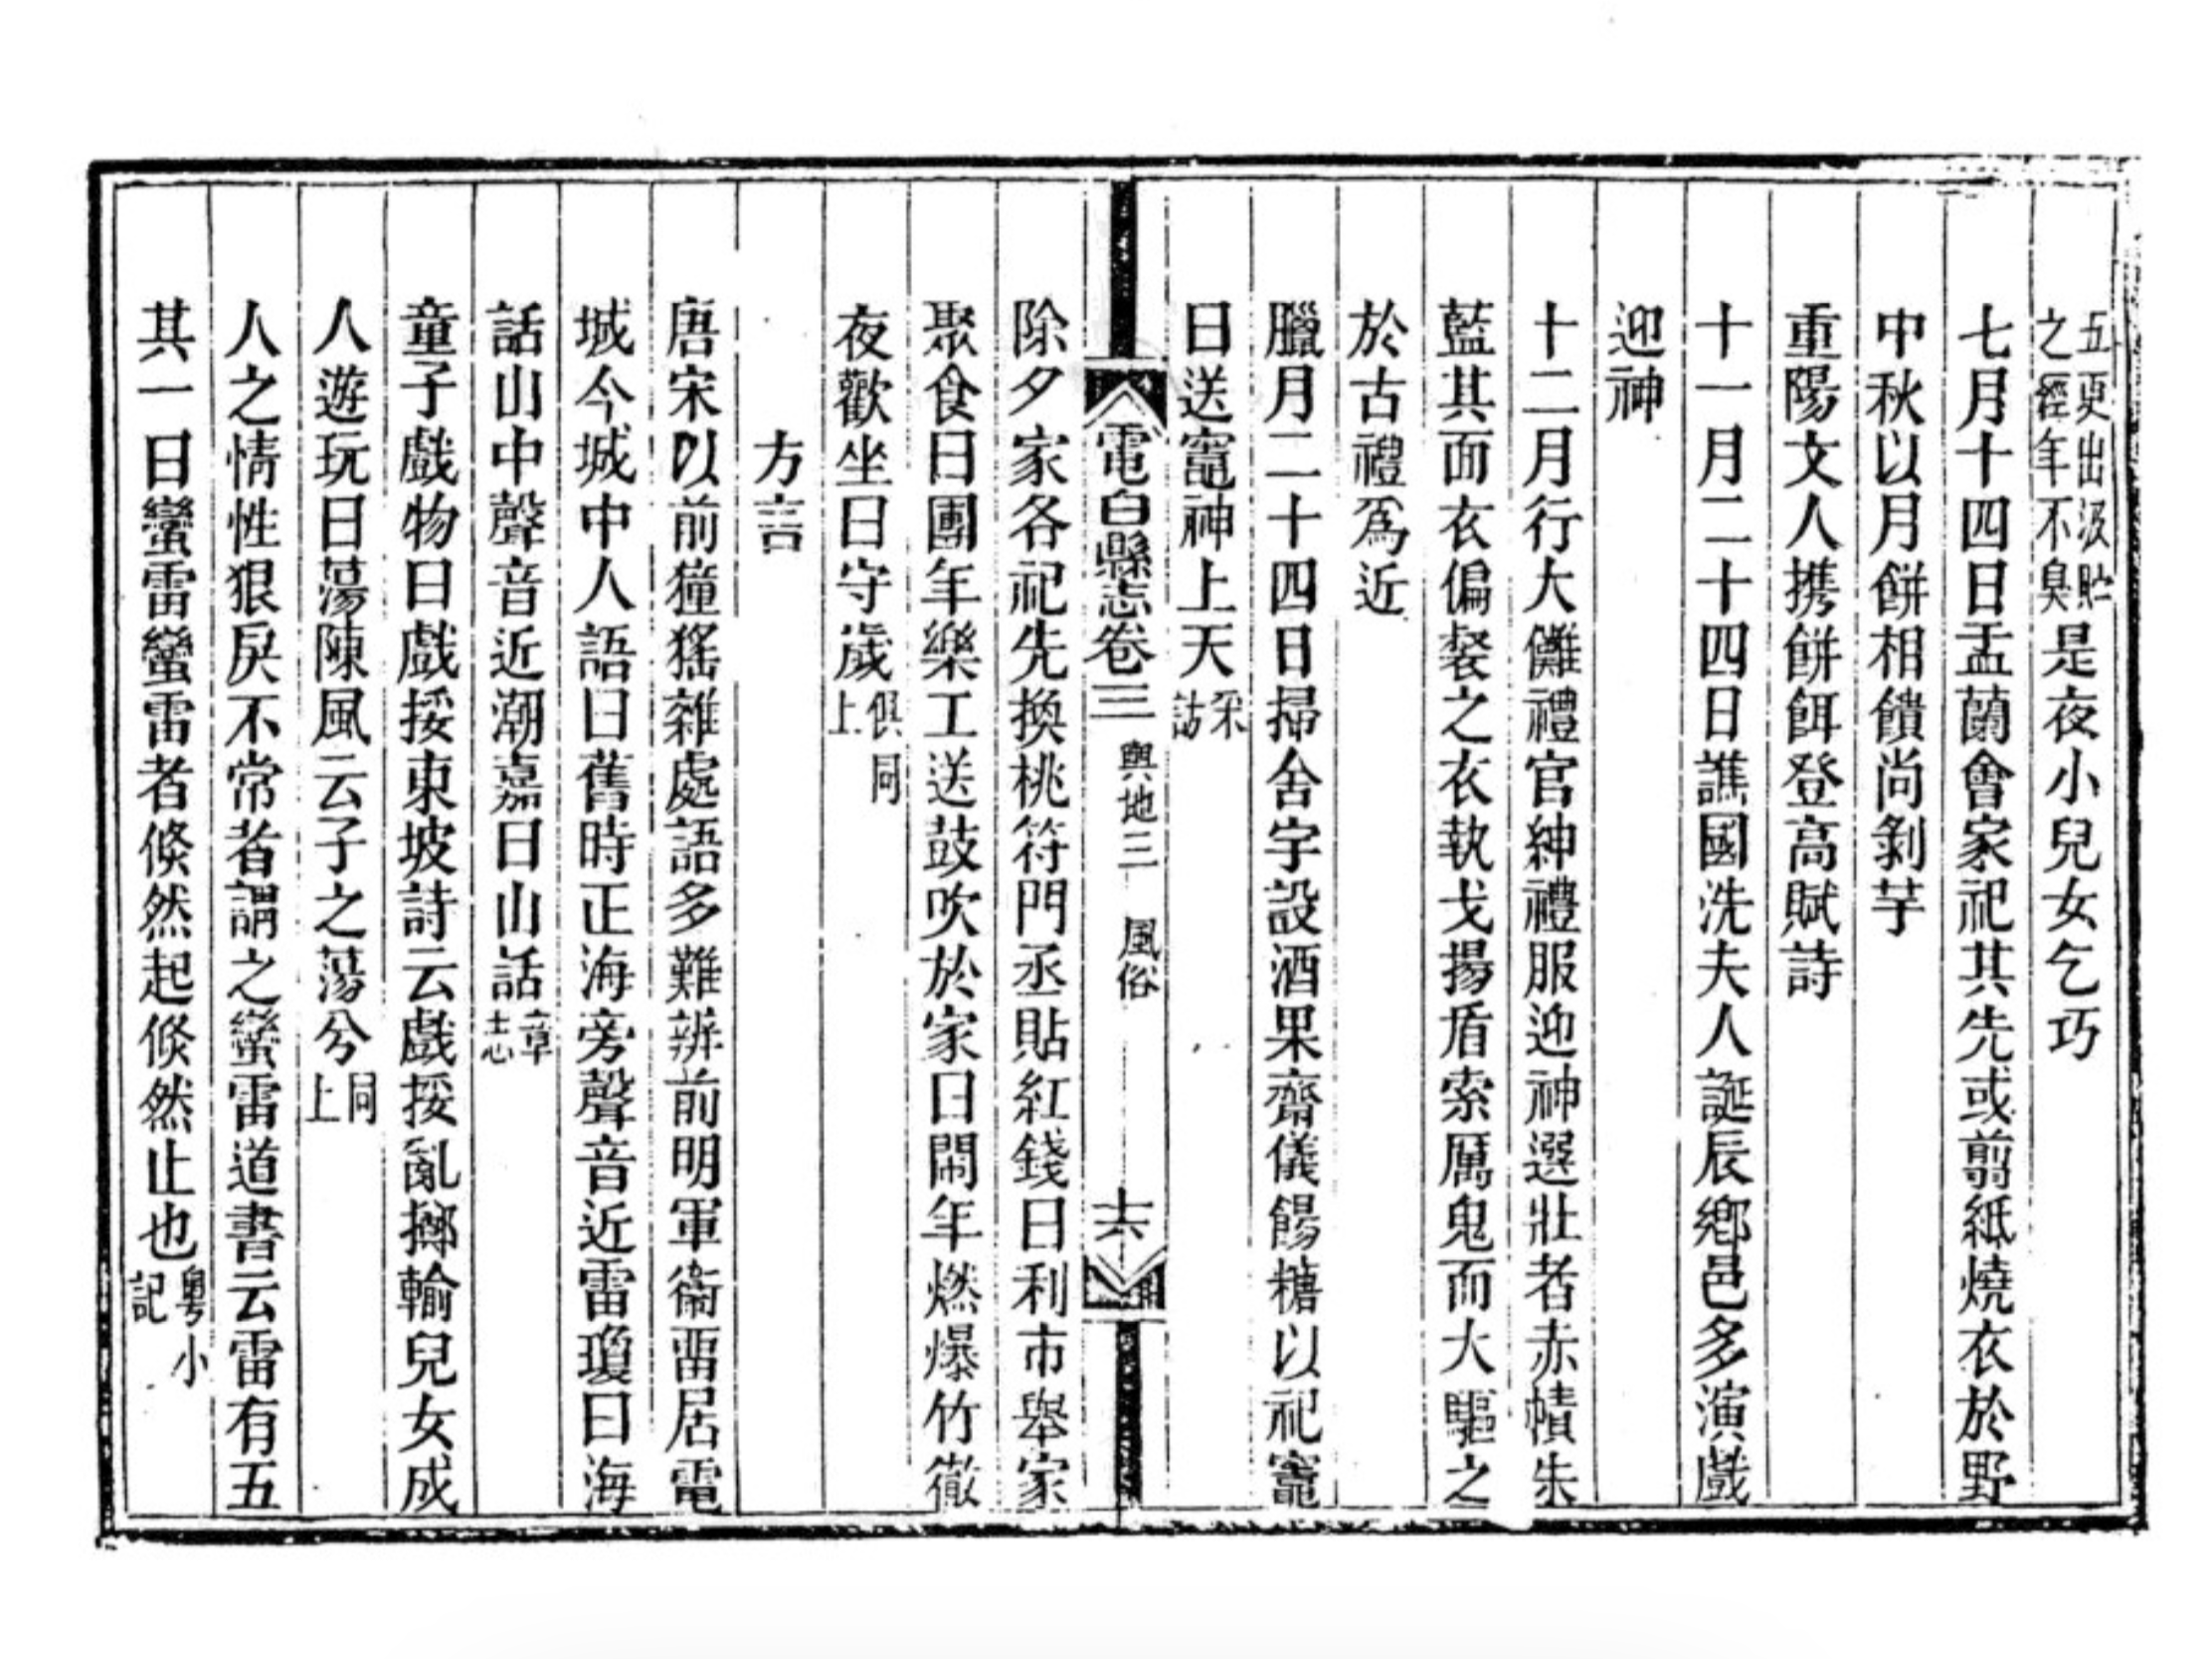 五更出汲貯之經年不臭是夜小兒女乞巧
七月十四日盂蘭會家祀其先或翦紙燒衣於野
中秋以月餅相饋尚剝芋
重陽文人携餅餌登高賦詩
十一月二十四日譙國洗夫人誕辰鄉邑多演戲
迎神
十二月行大儺禮官紳禮服迎神選壯者赤幘朱
藍其面衣偏裻之衣執戈揚盾索厲鬼而大驅之
於古禮爲近
臘月二十四日掃舍宇設酒果齋儀餳糖以祀竈
日送竈神上天采訪
電白縣志卷三 輿地三 風俗 十六
除夕家各祀先換桃符門丞貼紅錢曰利市舉家
聚食曰團年樂工送鼓吹於家曰鬧年燃爆竹徹
夜歡坐曰守歲俱同上
方言
唐宋以前獞猺雜處語多難辨前明軍衞畱居電
城今城中人語曰舊時正海旁聲音近雷瓊曰海
話山中聲音近潮嘉曰山話章志
童子戲物曰戲挼東坡詩云戲挼亂擲輸兒女成
人遊玩曰蕩陳風云子之蕩兮同上
人之情性狠戾不常者謂之蠻雷道書云雷有五
其一曰蠻雷蠻雷者倐然起倐然止也粵小記